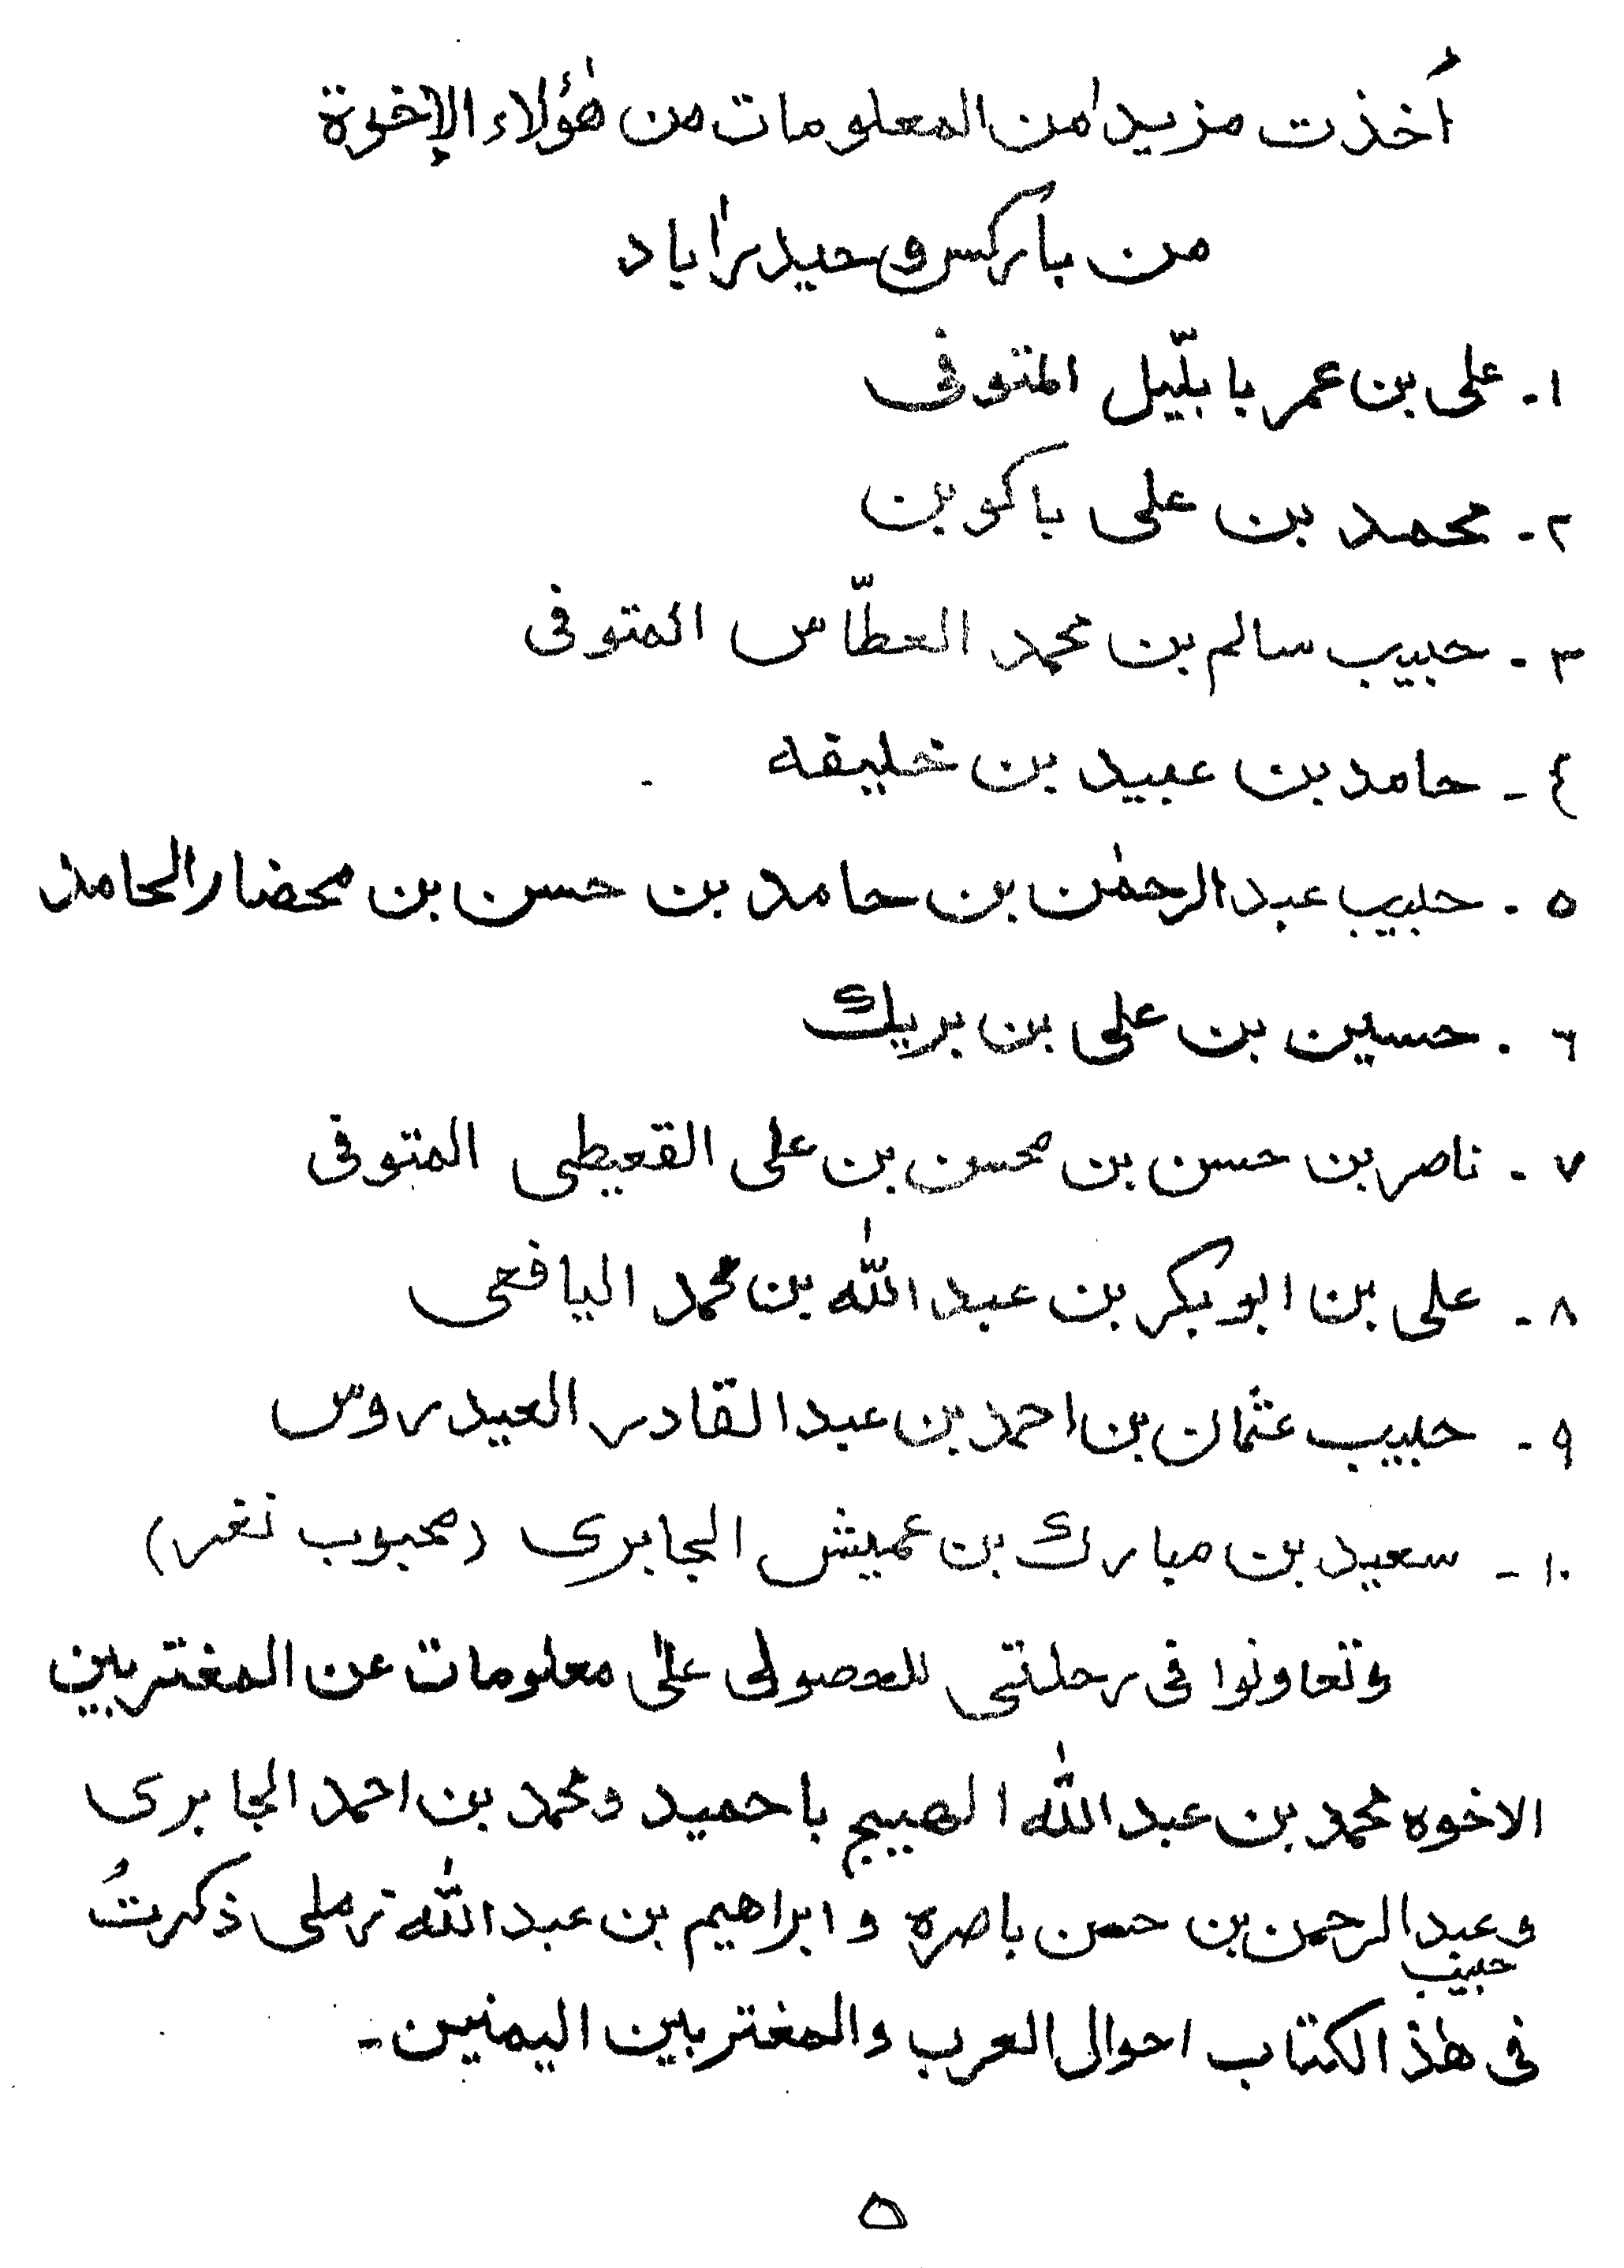 أُخذت مزيداً من المعلومات من هٰؤلاء الإخوة
من باركس و حيدرآباد
١- على بن عمر بابلّيل المتوفى
٢- محمد بن على باكوبن
٣- حبيب سالم بن محمد العطّاس المتوفى
٤- حامد بن عبيد بن خليفه
٥- حبيب عبدالرحمٰن بن حامد بن حسن بن محضار الحامد
٦- حسين بن على بن بريك
٧- ناصر بن حسن بن محسن بن على القعيطى المتوفى
٨- على بن ابوبكر بن عبد اللّٰه بن محمد اليافعى
٩- حبيب عثمان بن احمد بن عبد القادر العيدروس
١٠- سعيد بن مبارك بن عميش الجابرى (محبوب نغر)
وتعاونوا فى رحلتى للحصولى علىٰ معلومات عن المغتربين
الاخوه محمد بن عبد اللّٰه الهيبج باحميد ومحمد بن احمد الجابرى
وعبد الرحمن بن حسن باصره وابراهيم بن عبد اللّٰه ترملى ذكرتُ
حبيب
فى هٰذ الكتاب احوال العرب والمغتربين اليمنين-
٥